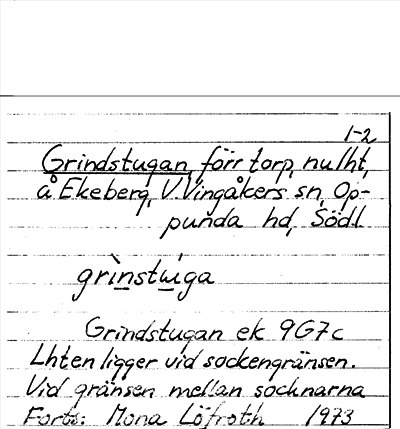 1-2
Grindstugan, förr torp, nu lht,
å Ekeberg, V. Vingåkers sn, Op-
punda hd, Södl.
grìnstẃiga
Grindstugan ek 9G7c
Lhten ligger vid sockengränsen.
Vid gränsen mellan socknarna
Forts: Mona Löfroth 1973